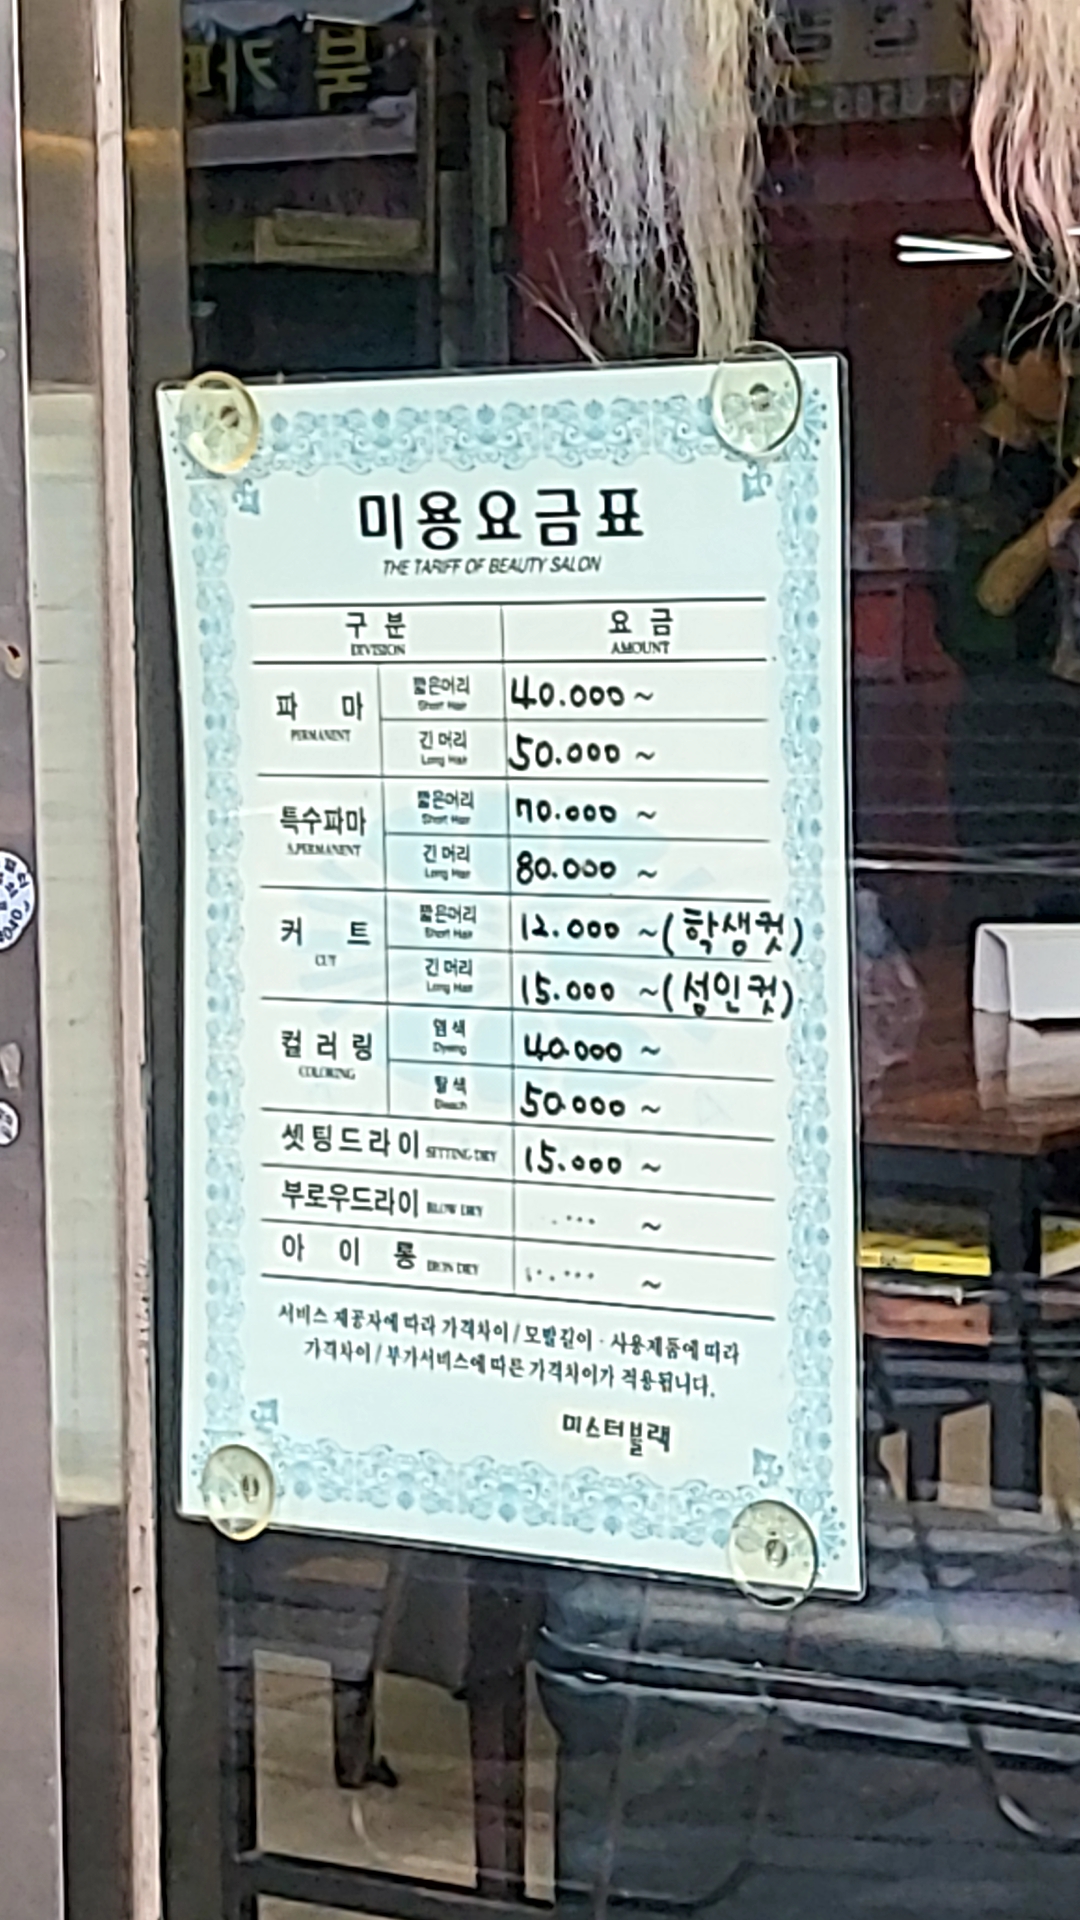 북카페
미용요금표
THE TARIFF OF BEAUTY SALON
구분 요금
DIVISION AMOUNT
파마 PERMANENT 짧은머리 Short Hair 40.000 ~
긴 머리 Long Hair 50.000 ~
특수파마 S.PERMANENT 짧은머리 Short Hair 70.000 ~
긴 머리 Long Hair 80.000 ~
커트 CUT 짧은머리 Short Hair 12.000 ~(학생컷)
긴 머리 Long Hair 15.000 ~(성인컷)
컬러링 COLORING 염색 Dyeing 40.000 ~
탈색 Bleach 50.000 ~
셋팅드라이 SETTING DRY 15.000 ~
부로우드라이 BLOW DRY ~
아이롱 IRON DRY ~
서비스 제공자에 따라 가격차이 / 모발길이 · 사용제품에 따라
가격차이 / 부가서비스에 따른 가격차이가 적용됩니다.
미스터블랙